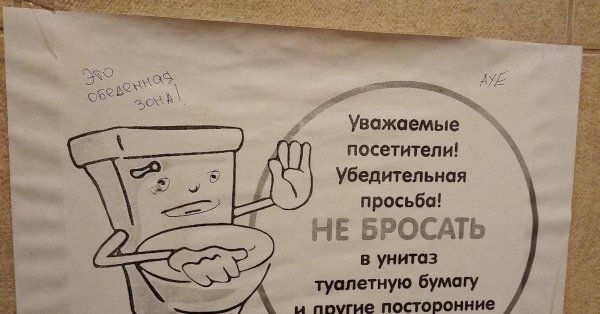 Это
обеденная
зона!
АУЕ
Уважаемые
посетители!
Убедительная
просьба!
НЕ БРОСАТЬ
в унитаз
туалетную бумагу
и другие посторонние